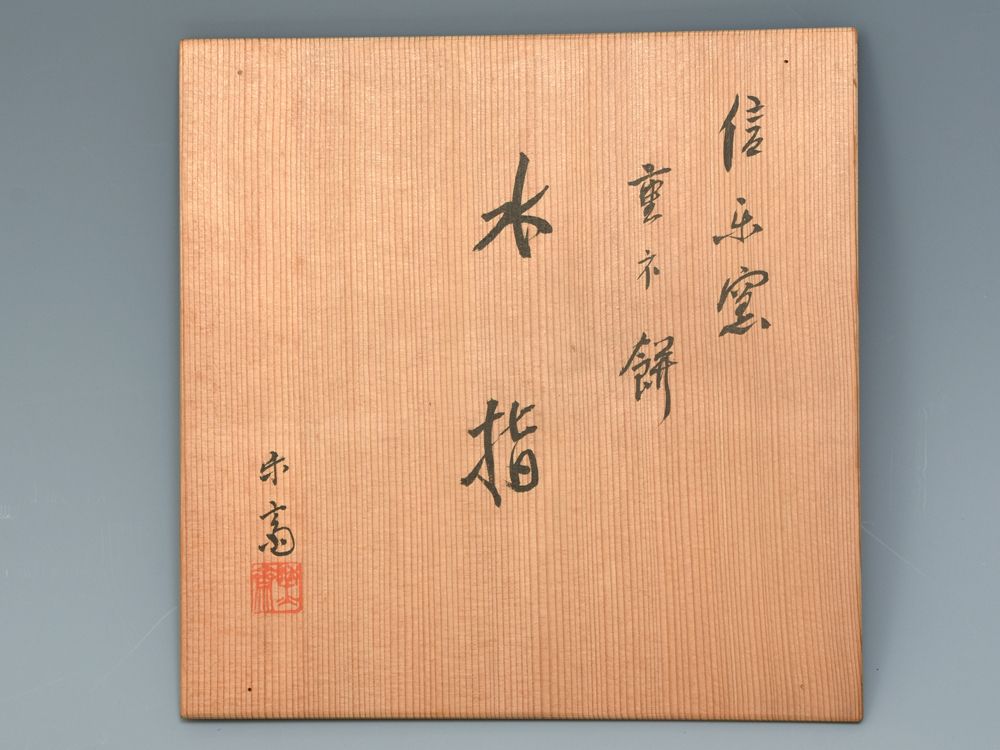 信楽窯
重ネ餅
水指
楽斎